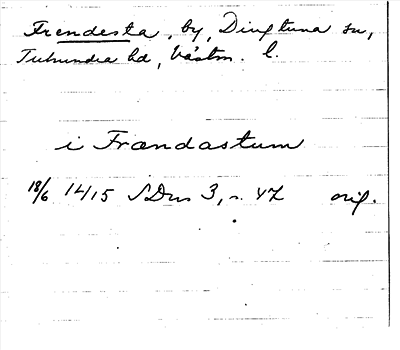 Frendesta, by, Dingtuna sn,
Tuhundra hd, Västm. l.
i Frændastum
18/6 1415 SDns 3, s. 42 orig.